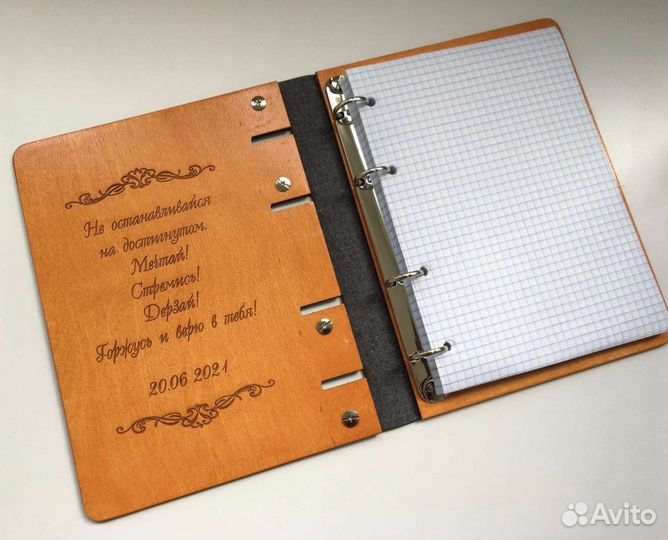 Не останавливайся
на достигнутом.
Мечтай!
Стремись!
Дерзай!
Горжусь и верю в тебя!
20.06 2021
Avito